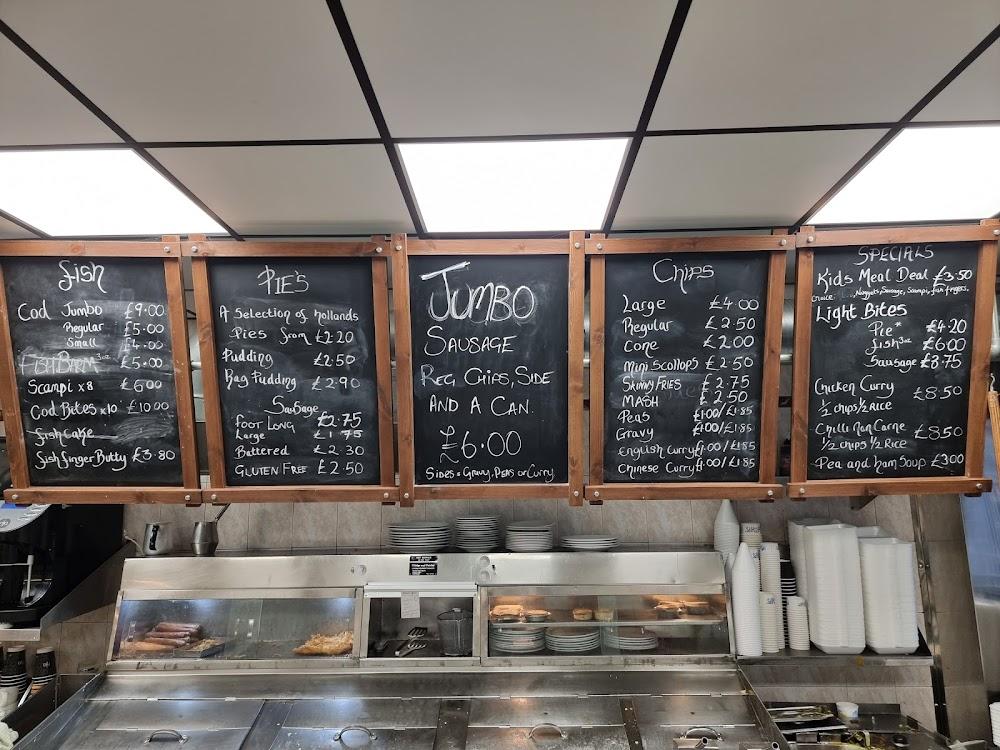 fish
Cod Jumbo £9.00
Regular £5.00
Small £4.00
FISH BARM 3oz £5.00
Scampi x 8 £6.00
Cod Bites x 10 £10.00
fish cake
fish finger Butty £3.80
PIE'S
A Selection of Hollands
Pies from £2.20
Pudding £2.50
Rag Pudding £2.90
Sausage
FOOT LONG £2.75
Large £1.75
Battered £2.30
GLUTEN FREE £2.50
JUMBO
SAUSAGE
REG CHIPS, SIDE
AND A CAN.
£6.00
SIDES = Gravy, PEAS or Curry
CHIPS
Large £4.00
Regular £2.50
Cone £2.00
Mini Scollops £2.50
SKINNY FRIES £2.75
MASH £2.50
Peas £1.00/£1.85
Gravy £1.00/£1.85
English Curry £1.00/£1.85
Chinese Curry £1.00/£1.85
SPECIALS
Kids Meal Deal £3.50
Nuggets, Sausage, Scampi, fish fingers.
Light Bites
Pie* £4.20
fish 3oz £6.00
Sausage £3.75
Chicken Curry £8.50
1/2 chips 1/2 Rice
Chilli Non Carne £8.50
1/2 chips 1/2 Rice
Pea and Ham Soup £3.00